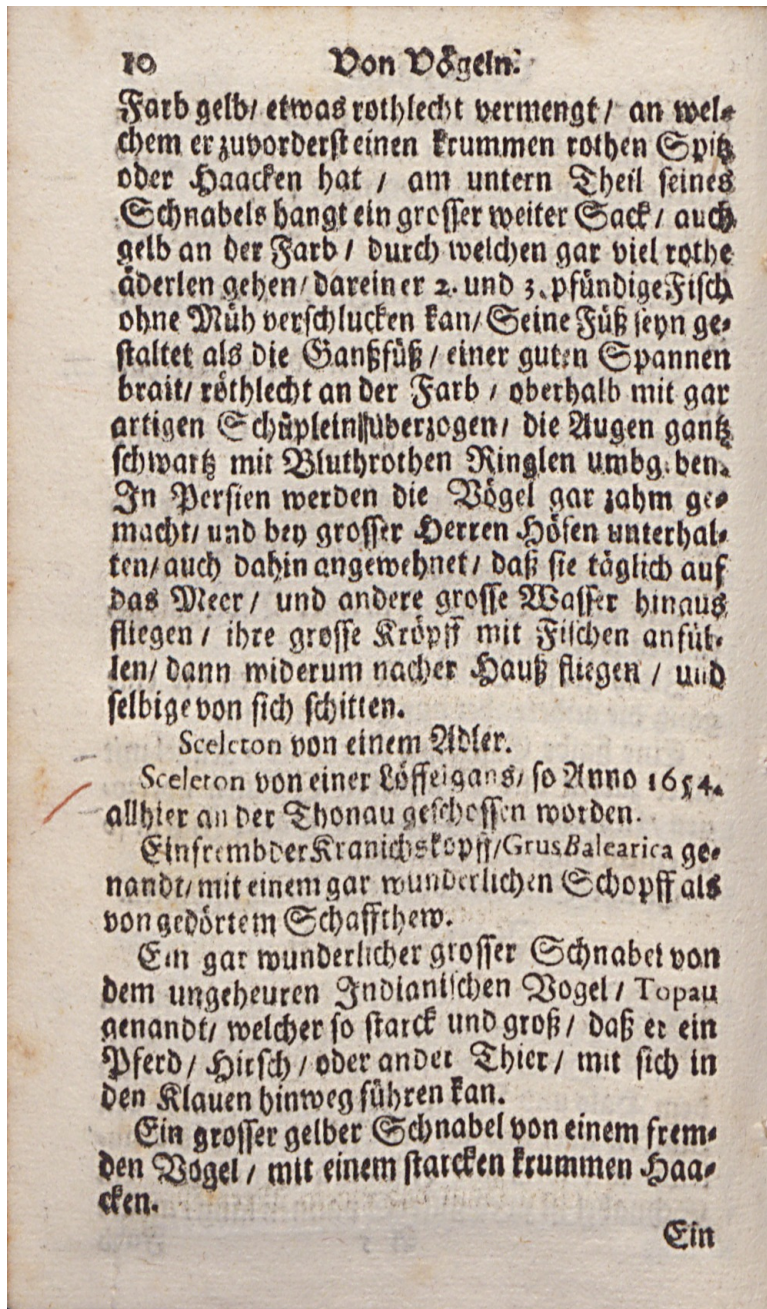 10 Von Vögeln.
Farb gelb/ etwas rothlecht vermengt/ an wel-
chem er zuvorderst einen krummen rothen Spitz
oder Haacken hat / am untern Theil seines
Schnabels hangt ein grosser weiter Sack/ auch
gelb an der Farb / durch welchen gar viel rothe
äderlen gehen/ darein er 2. und 3. pfündige Fisch
ohne Müh verschlucken kan/ Seine Füß seyn ge-
staltet als die Ganßfüß / einer guten Spannen
brait/ röthlecht an der Farb / oberhalb mit gar
artigen Schüplein überzogen/ die Augen gantz
schwartz mit Bluthrothen Ringlen umbgeben.
In Persien werden die Vögel gar zahm ge-
macht/ und bey grosser Herren Höfen unterhal-
ten/ auch dahin angewehnet/ daß sie täglich auf
das Meer/ und andere grosse Wasser hinaus
fliegen / ihre grosse Kröpff mit Fischen anfül-
len/ dann widerum nacher Hauß fliegen / und
selbige von sich schitten.
Sceleton von einem Adler.
Sceleton von einer Löffelgans/ so Anno 1654.
allhier an der Thonau geschossen worden.
Ein frembder Kranichskopff/ Grus Balearica ge-
nandt/ mit einem gar wunderlichen Schopff als
von gedörtem Schaffthew.
Ein gar wunderlicher grosser Schnabel von
dem ungeheuren Indianischen Vogel / Topau
genandt/ welcher so starck und groß/ daß er ein
Pferd / Hirsch / oder ander Thier/ mit sich in
den Klauen hinweg führen kan.
Ein grosser gelber Schnabel von einem frem-
den Vogel / mit einem starcken krummen Haa-
cken.
Ein